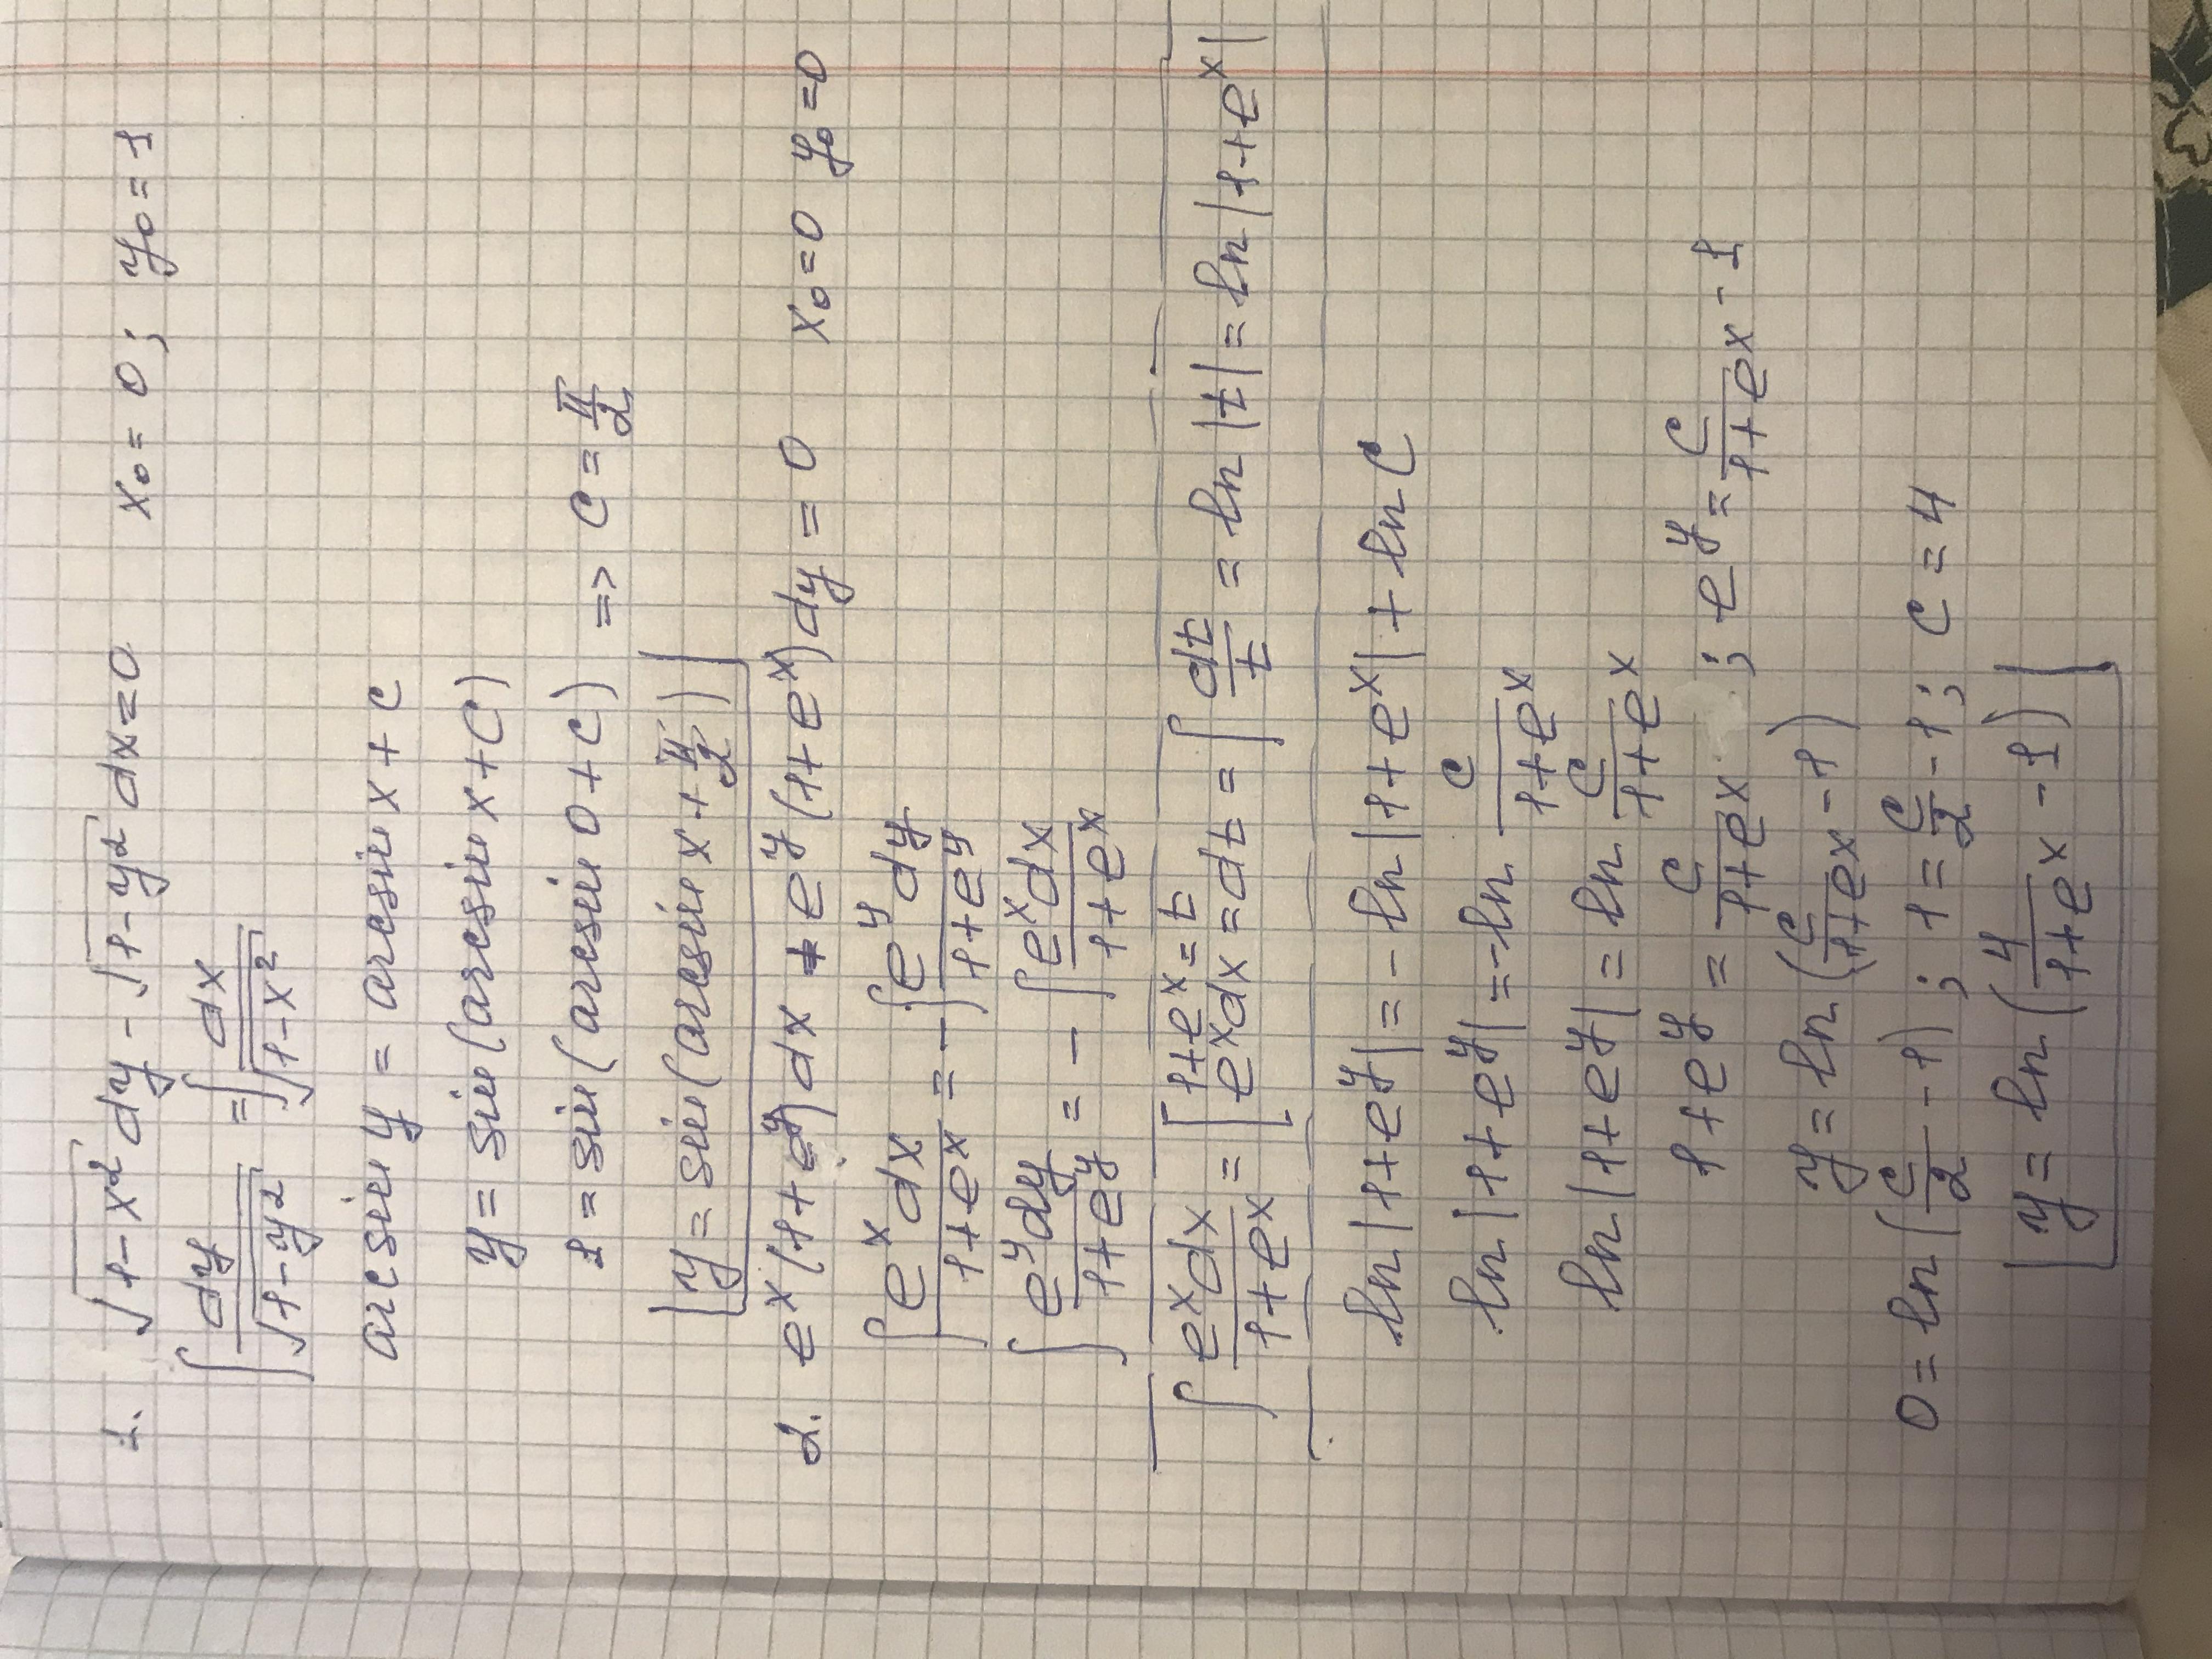 1. √(1-x²) dy - √(1-y²) dx = 0 x₀ = 0; y₀ = 1
∫ dy/√(1-y²) = ∫ dx/√(1-x²)
arcsin y = arcsin x + c
y = sin(arcsin x + C)
1 = sin(arcsin 0 + c) => c = π/2
y = sin(arcsin x + π/2)
2. eˣ(1+eʸ)dx + eʸ(1+eˣ)dy = 0 x₀=0 y₀=0
∫ eˣdx/(1+eˣ) = - ∫ eʸdy/(1+eʸ)
∫ eʸdy/(1+eʸ) = - ∫ eˣdx/(1+eˣ)
∫ eˣdx/(1+eˣ) = [1+eˣ=t eˣdx=dt = ∫ dt/t = ln|t| = ln|1+eˣ|
ln|1+eʸ| = - ln|1+eˣ| + ln C
ln|1+eʸ| = -ln C/(1+eˣ)
ln|1+eʸ| = ln C/(1+eˣ)
1+eʸ = C/(1+eˣ) ; eʸ = C/(1+eˣ) - 1
y = ln(C/(1+eˣ) - 1)
0 = ln(C/2 - 1) ; 1 = C/2 - 1; C = 4
y = ln(4/(1+eˣ) - 1)